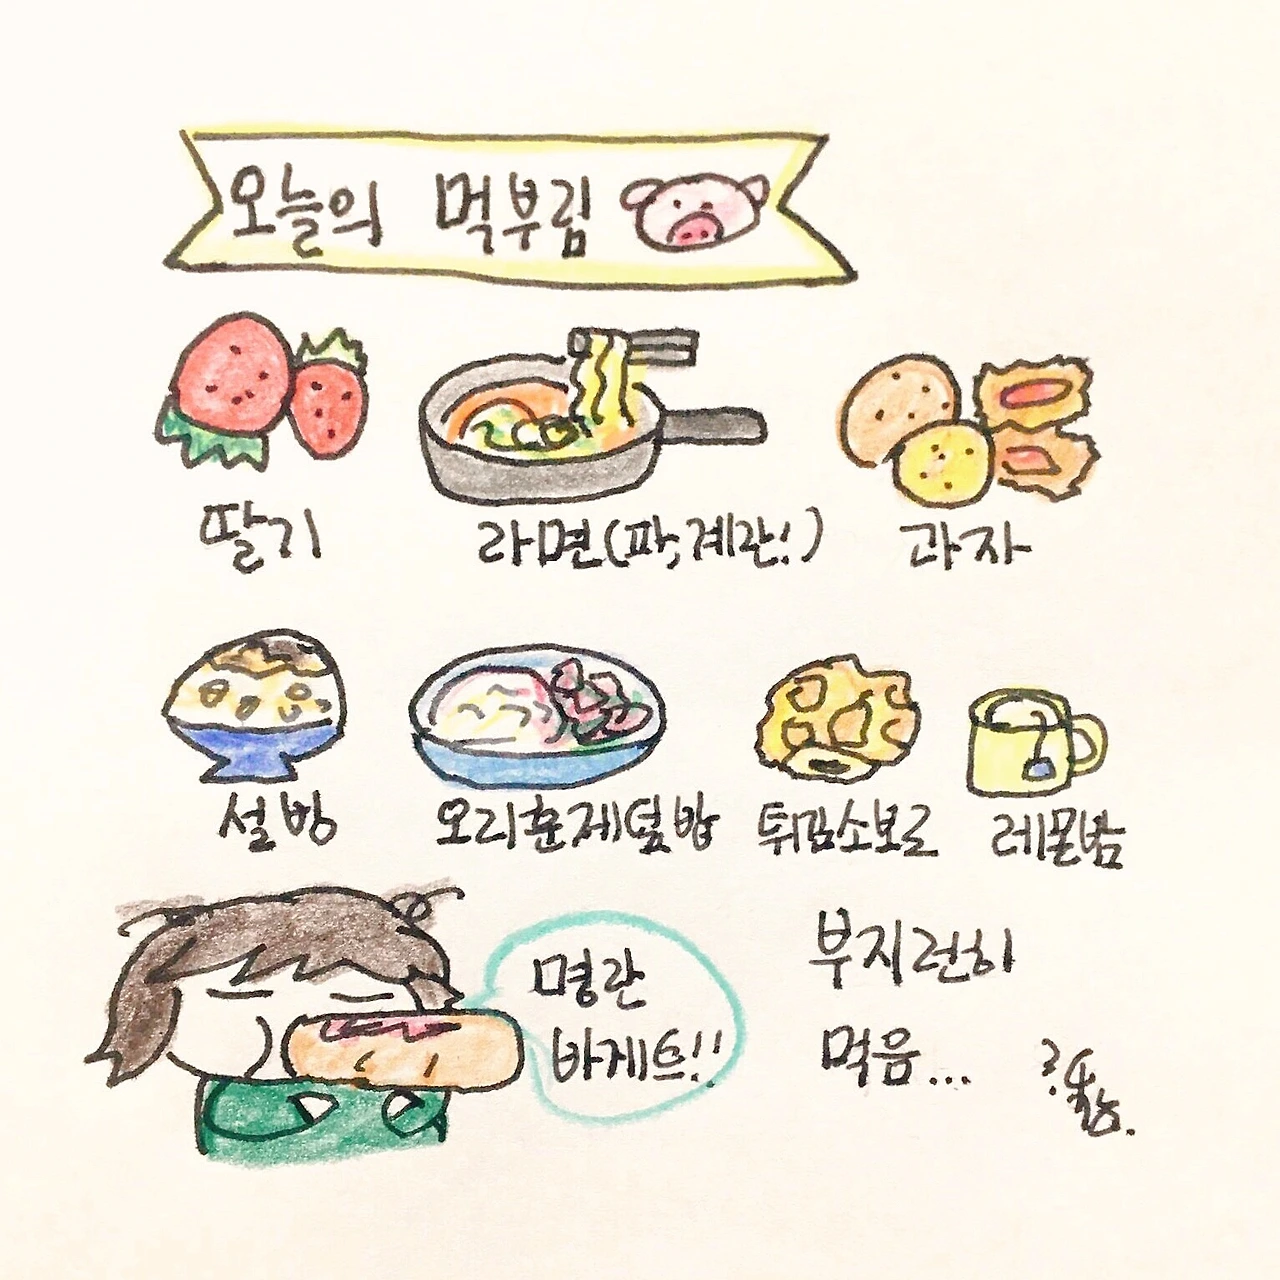 오늘의 먹부림
딸기
라면(파,계란!)
과자
설빙
오리훈제덮밥
튀김소보로
레몬밤
명란
바게트!!
부지런히
먹음...